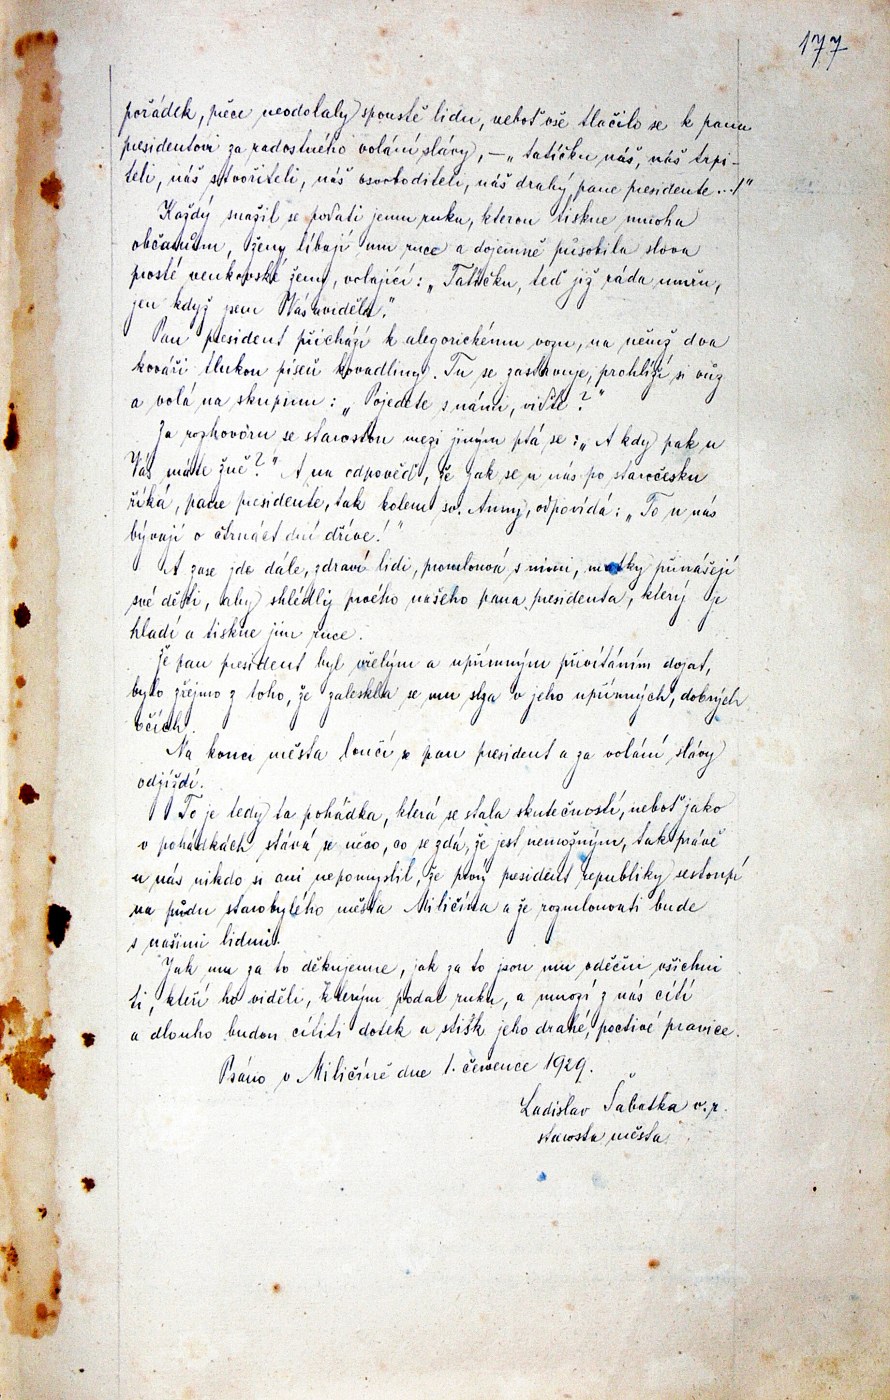 177
pořádek, přece neodolaly spoustě lidu, neboť vše tlačilo se k panu
presidentovi za radostného volání slávy, – „tatíčku náš, náš trpi-
teli, náš stvořiteli, náš osvoboditeli, náš drahý pane presidente...!"
Každý snažil se podati jemu ruku, kterou tiskne mnoha
občanům, ženy líbají mu ruce a dojemně působila slova
prosté venkovské ženy, volající: „Tatíčku, teď již ráda umřu,
jen když jsem Vás uviděla."
Pan president přichází k alegorickému vozu, na němž dva
kováři tlukou píseň kovadliny. Tu se zastavuje, prohlíží si vůz
a volá na skupinu: „Pojedete s námi, viďte?"
Za rozhovóru se starostou mezi jiným ptá se: „A kdy pak u
Vás máte žně?" A na odpověď, že jak se u nás po staročesku
říká, pane presidente, tak kolem sv. Anny, odpovídá: „To u nás
bývají o čtrnáct dní dříve!"
A zase jde dále, zdraví lidi, promlouvá s nimi, matky přinášejí
své děti, aby shlédly prvého našeho pana presidenta, který je
hladí a tiskne jim ruce.
Že pan president byl vřelým a upřímným přivítáním dojat,
bylo zřejmo z toho, že zaleskla se mu slza v jeho upřímných, dobrých
očích.
Na konci města loučí se pan president a za volání slávy
odjíždí.
To je tedy ta pohádka, která se stala skutečností, neboť jako
v pohádkách stává se něco, co se zdá, že jest nemožným, tak právě
u nás nikdo si ani nepomyslil, že prvý president republiky sestoupí
na půdu starobylého města Miličína a že rozmlouvati bude
s našimi lidmi.
Jak mu za to děkujeme, jak za to jsou mu vděčni všichni
ti, kteří ho viděli, kterým podal ruku, a mnozí z nás cítí
a dlouho budou cítiti dotek a stisk jeho drahé, poctivé pravice.
Psáno v Miličíně dne 1. července 1929.
Ladislav Šabatka v.r.
starosta města.